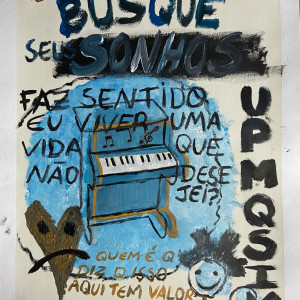 BUSQUE
SEUS SONHOS
FAZ SENTIDO
EU VIVER UMA
VIDA QUE
NÃO DESE
JEI?
QUEM É Q
DIZ Q ISSO
AQUI TEM VALOR
UPMQSI